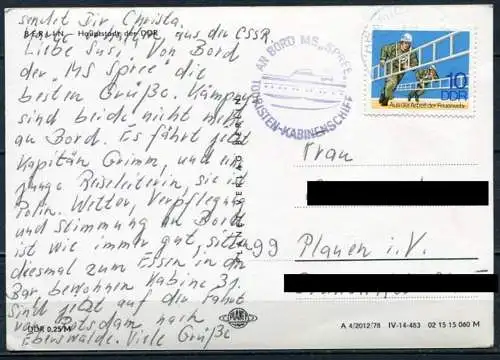 sendet Dir, Christa.
aus der CSSR.
BERLIN — Hauptstadt der DDR
Liebe Susi, Von Bord
der „MS Spree" die
besten Grüße. Kämpung
sind beide nicht mehr
an Bord. Es fährt jetzt
Kapitän Grimm, und ein
junge Reiseleiterin, sie ist
Polin. Wetter, Verpflegung
und Stimmung an Bord
ist wie immer gut, sitzen
diesmal zum Essen in der
Bar, bewohnen Kabine 31.
Sind jetzt auf der Fahrt
von Potsdam nach
Eberswalde. Viele Grüße
DDR 0,25 M
PLANET
AN BORD MS „SPREE"
TOURISTEN-KABINENSCHIFF
10
DDR
Aus der Arbeit der Feuerwehr
Frau
99 Plauen i. V.
A 4/2012/78 IV-14-483 02 15 15 060 M